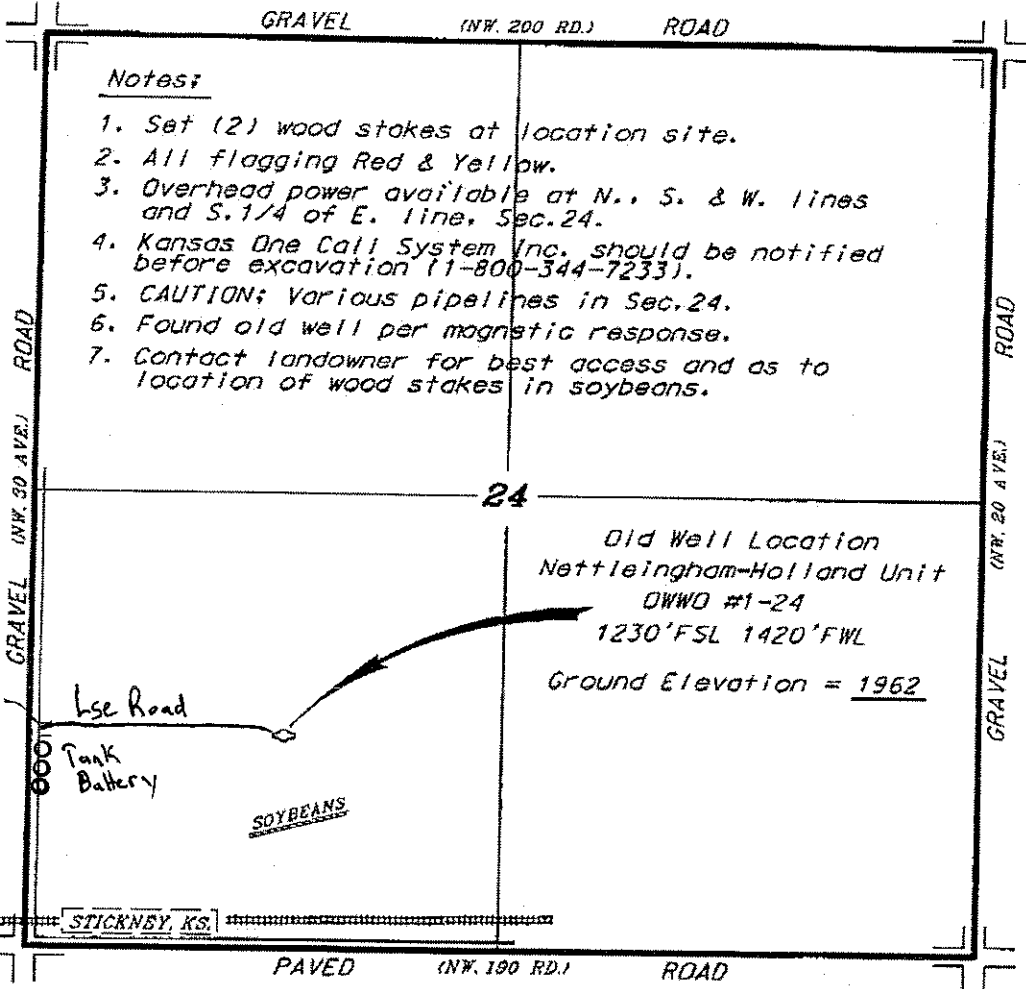 GRAVEL (NW. 200 RD.) ROAD
Notes:
1. Set (2) wood stakes at location site.
2. All flagging Red & Yellow.
3. Overhead power available at N., S. & W. lines
and S.1/4 of E. line, Sec.24.
4. Kansas One Call System Inc. should be notified
before excavation (1-800-344-7233).
5. CAUTION: Various pipelines in Sec.24.
6. Found old well per magnetic response.
7. Contact landowner for best access and as to
location of wood stakes in soybeans.
GRAVEL (NW. 30 AVE.) ROAD
GRAVEL (NW. 20 AVE.) ROAD
24
Old Well Location
Nettleingham-Holland Unit
OWWO #1-24
1230'FSL 1420'FWL
Ground Elevation = 1962
Lse Road
Tank
Battery
SOYBEANS
STICKNEY, KS.
PAVED (NW. 190 RD.) ROAD